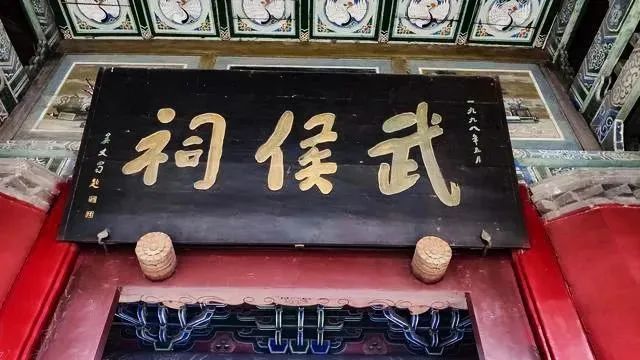 一九九八年五月
武侯祠